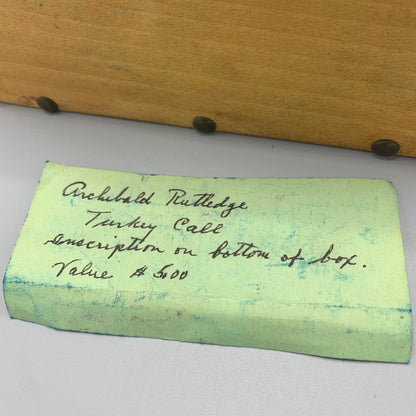 Archibald Rutledge
Turkey Call
inscription on bottom of box.
Value $ 5.00